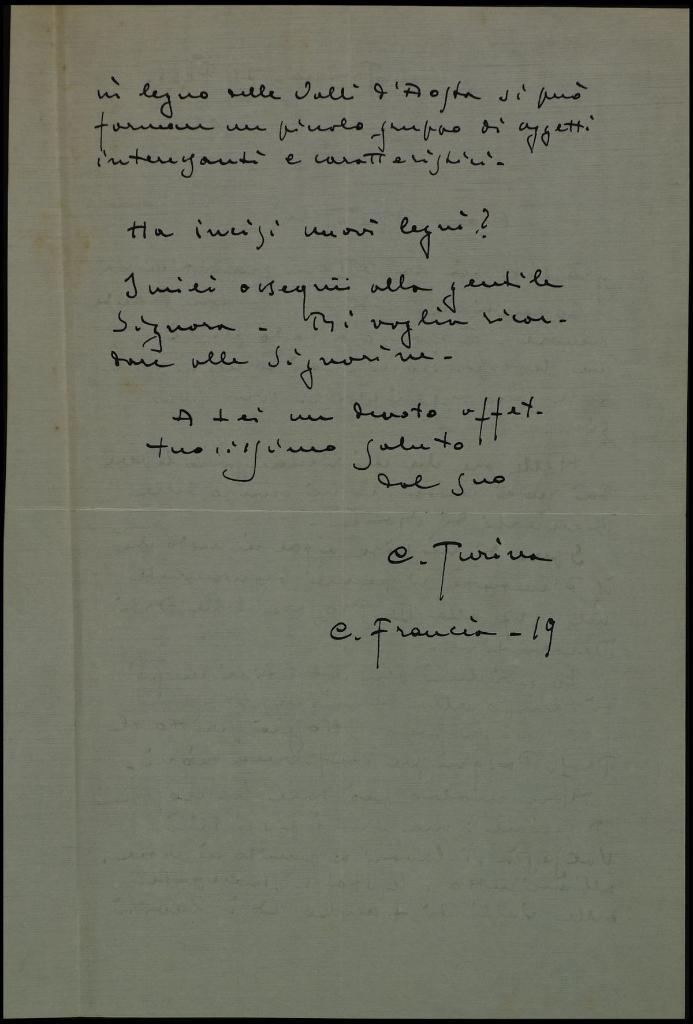 in legno delle Valli d'Aosta si può
formare un piccolo gruppo di oggetti
interessanti e caratteristici.
Ha incisi nuovi legni?
I miei ossequii alla gentile
Signora - Mi voglia ricor-
dare alle Signorine -
A Lei un devoto affet-
tuosissimo saluto
dal suo
C. Turina
C. Francia - 19